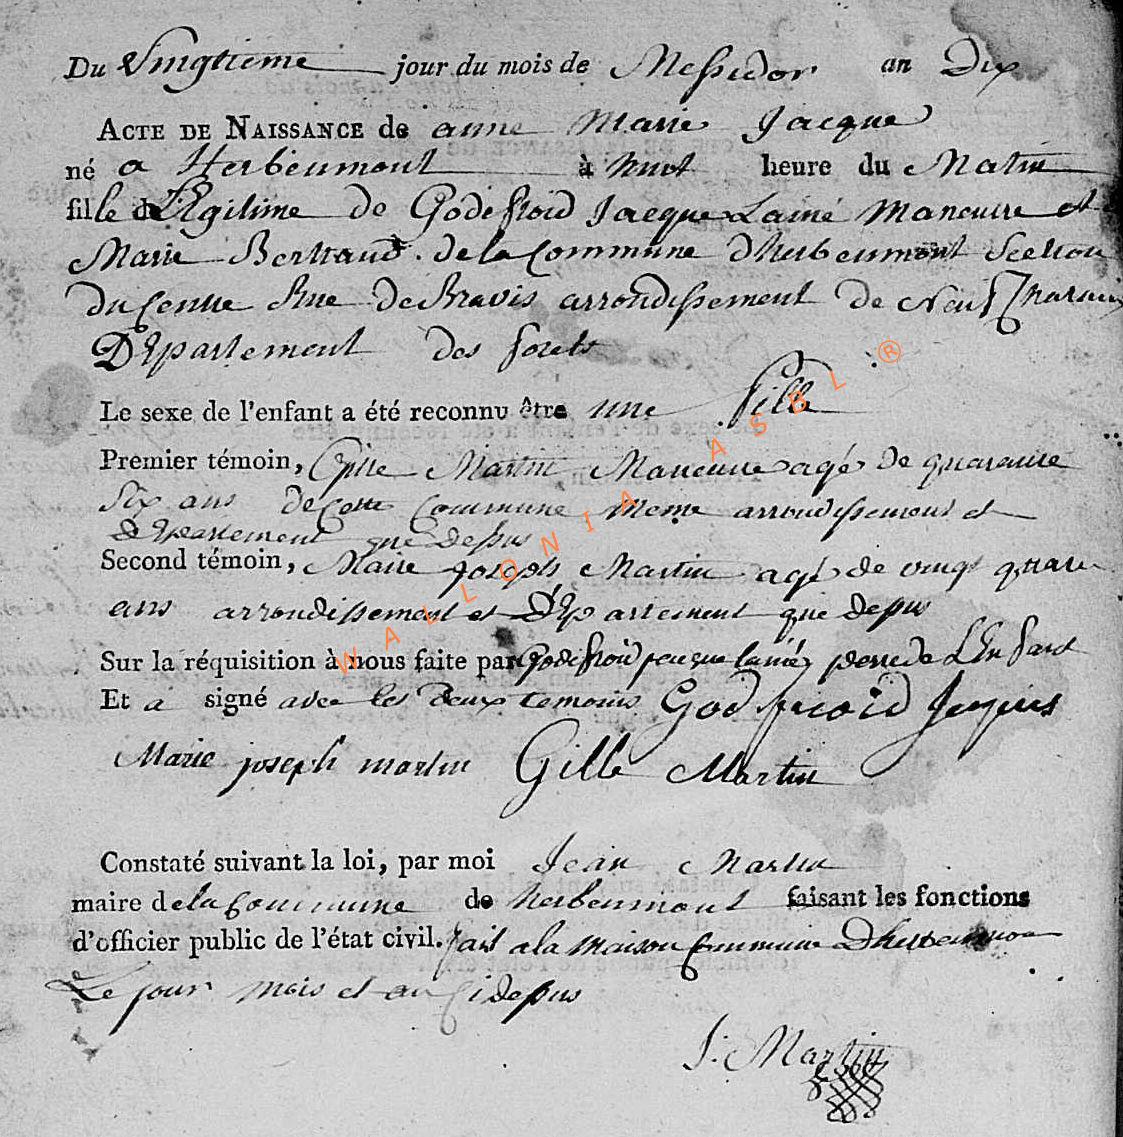 Du Vingtieme jour du mois de Messidor an Dix
ACTE DE NAISSANCE de anne Marie Jacque
né a Herbeumont à huit heure du Matin
fille de Légitime de Godefroid Jacque Lainé Maneuvre et
Marie Bertrand de la Commune dherbeumont Section
du Centre Rue de Bravis arrondissement de Neuf Charteau
DEpartement des forets
Le sexe de l'enfant a été reconnu être une fille
Premier témoin, Martin Maneuvre agé de quarante
Six ans de Cette Commune meme arrondissement et
dEpartement que dessus
Second témoin, Marie joseph Martin agé de vingt quatre
ans arrondissement et DEpartement que depus
Sur la réquisition à nous faite par Godefroid jacque lainé perre de LEnfant
Et a signé avec les deux temoins Godfrioid Jacques
Marie joseph martin Gille Martin
Constaté suivant la loi, par moi Jean Martin
maire de la Commune de herbeumont faisant les fonctions
d'officier public de l'état civil. fait a la maison Commune Dherbeumon
Le jour mois et an Ci depus
J: Martin
WALLONIA ASBL ®